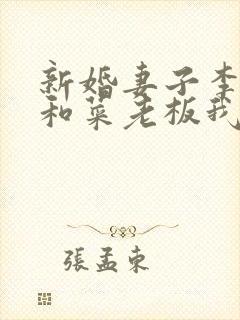 新婚妻子李
和菜老板我
張孟東